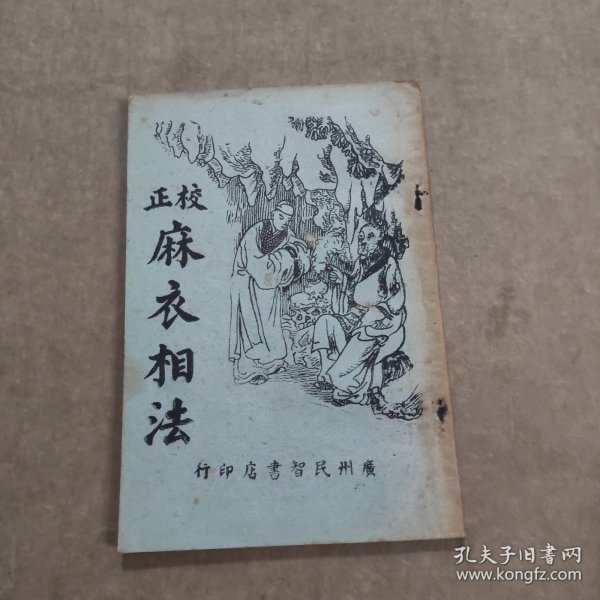 校正
麻衣相法
廣州民智書店印行
孔夫子旧书网
www.kongfz.com